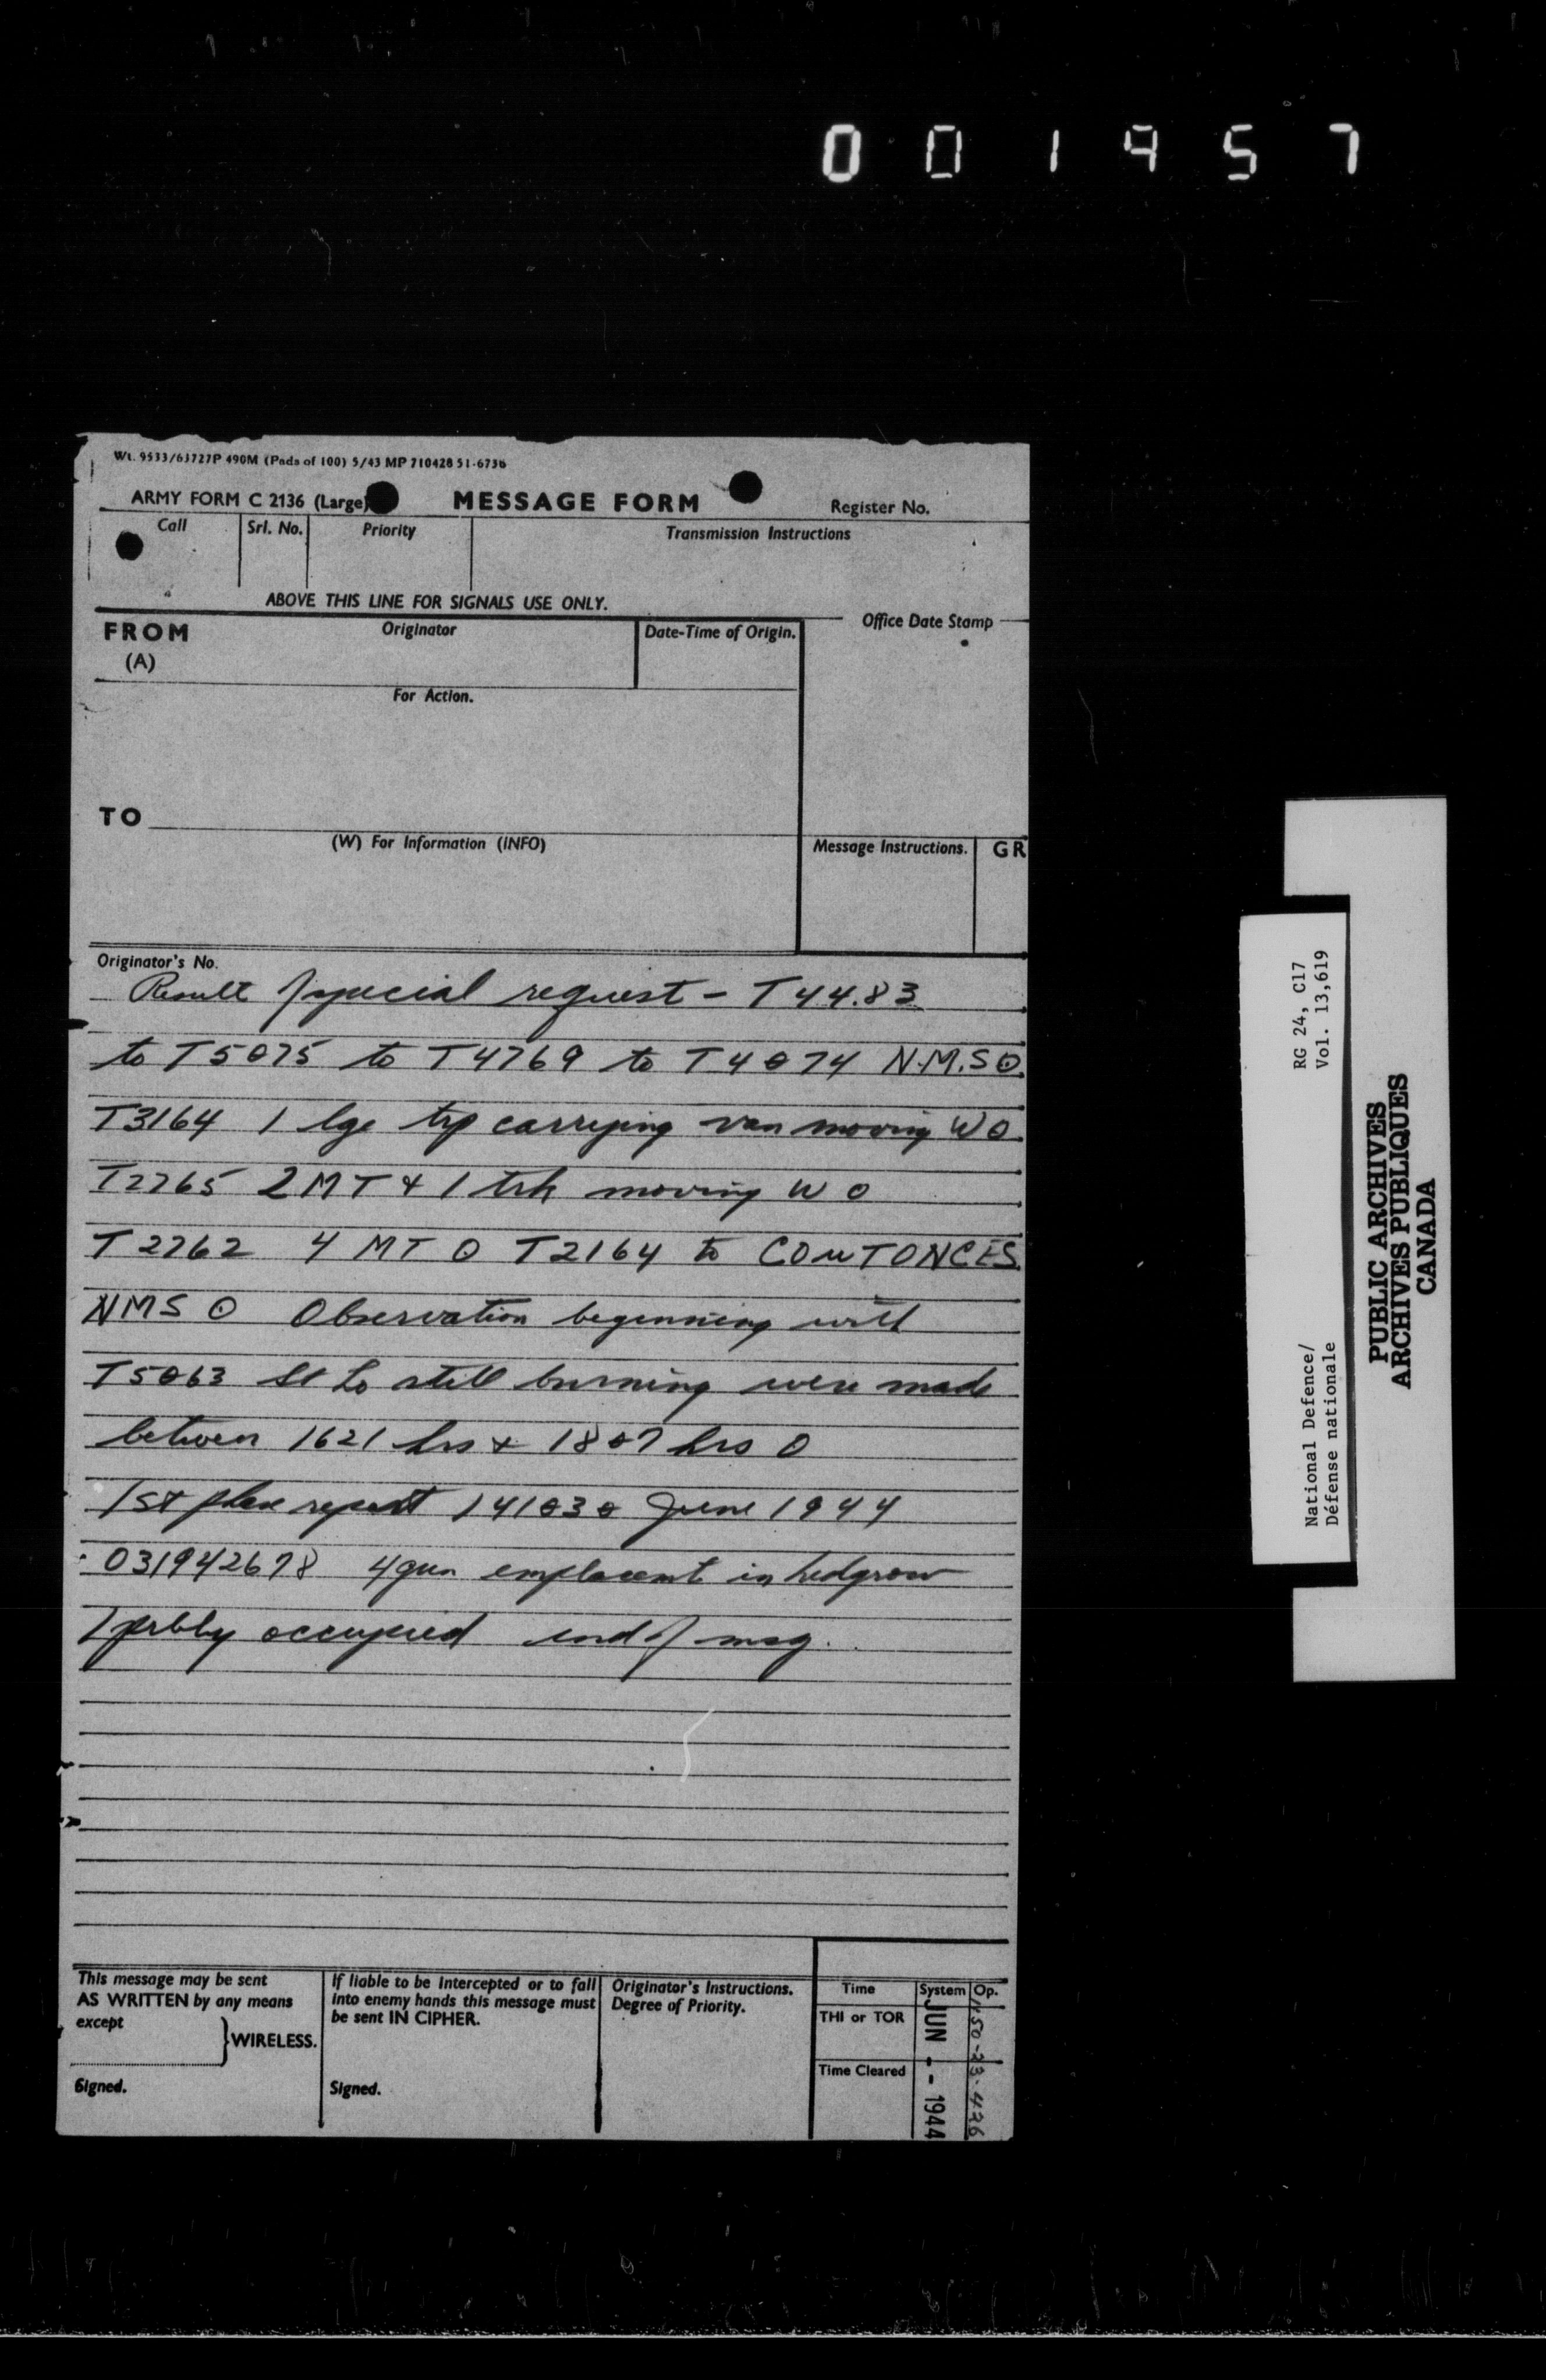 001957
Wt. 9533/63727P 490M (Pads of 100) 5/43 MP 710428 51-6736
ARMY FORM C 2136 (Large) MESSAGE FORM Register No.
Call Srl. No. Priority Transmission Instructions
ABOVE THIS LINE FOR SIGNALS USE ONLY.
FROM Originator Date-Time of Origin. Office Date Stamp
(A)
For Action.
TO
(W) For Information (INFO) Message Instructions. GR
Originator's No.
Result of special request - T44.83
to T5075 to T4769 to T4074 N.M.S ⊙
T3164 1 lge trp carrying van moving W O
T2765 2 MT & 1 trk moving W O
T2762 4 MT O T2164 to COUTONCES
NMS ⊙ Observation beginning with
T5063 St Lo still burning were made
between 1621 hrs & 1807 hrs O
1st phase report 141030 June 1944
031942678 4 gun emplacemt in hedgrow
prbbly occupied end of msg.
This message may be sent
AS WRITTEN by any means
except
WIRELESS.
Signed.
If liable to be intercepted or to fall
into enemy hands this message must
be sent IN CIPHER.
Signed.
Originator's Instructions.
Degree of Priority.
Time System Op.
THI or TOR
Time Cleared
JUN - - 1944
National Defence/ RG 24, C17
Défense nationale Vol. 13,619
PUBLIC ARCHIVES
ARCHIVES PUBLIQUES
CANADA